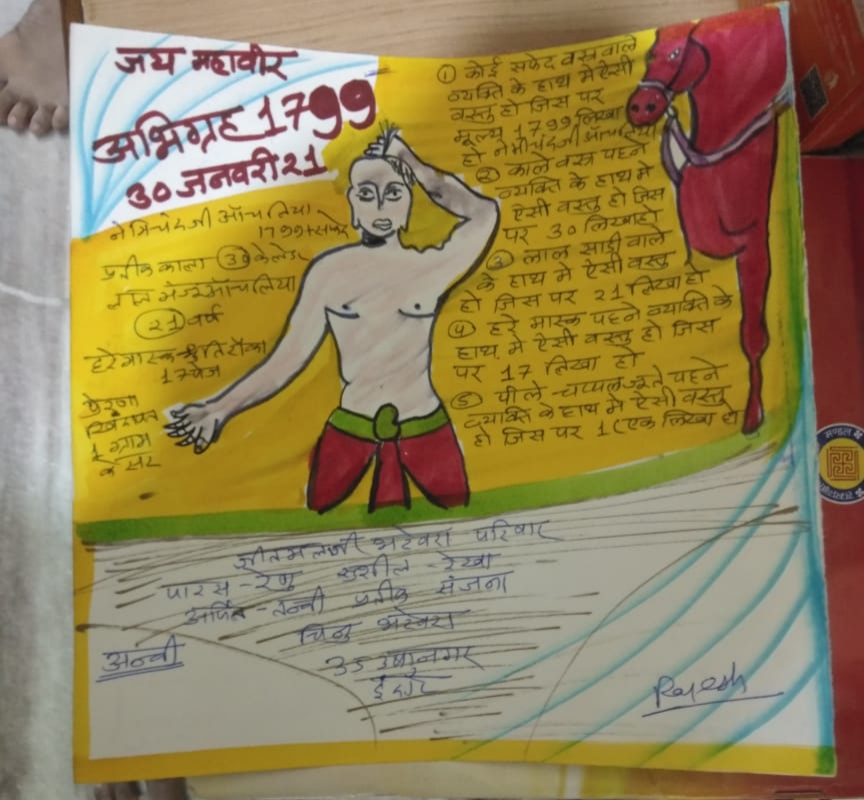 जय महावीर
अभिग्रह 1799
30 जनवरी 21
नेमिचंदजी आँचलिया
1799 सफेद
प्रतीक काला 30 केलेंडर
लाल मंजू आँचलिया
21 वर्ष
हरे मास्क
17 पेज
प्रेरणा
1 ग्राम
केसर
① कोई सफेद वस्त्र वाले
व्यक्ति के हाथ मे ऐसी
वस्तु हो जिस पर
मूल्य 1799 लिखा
हो नेमीचंदजी आँचलिया
② काले वस्त्र पहने
व्यक्ति के हाथ मे
ऐसी वस्तु हो जिस
पर 30 लिखा हो
③ लाल साड़ी वाले
के हाथ मे ऐसी वस्तु
हो जिस पर 21 लिखा हो
④ हरे मास्क पहने व्यक्ति के
हाथ मे ऐसी वस्तु हो जिस
पर 17 लिखा हो
⑤ पीले चप्पल जूते पहने
व्यक्ति के हाथ मे ऐसी वस्तु
हो जिस पर 1 (एक लिखा हो
शीतमलजी भटेवरा परिवार
पारस - रेणु सुशील - रेखा
अर्पित - तन्वी प्रतीक संजना
चिनु भटेवरा
35 उषानगर
इंदौर
अन्वी
Rajesh
मण्डल